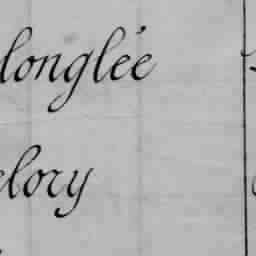 longlée
lory